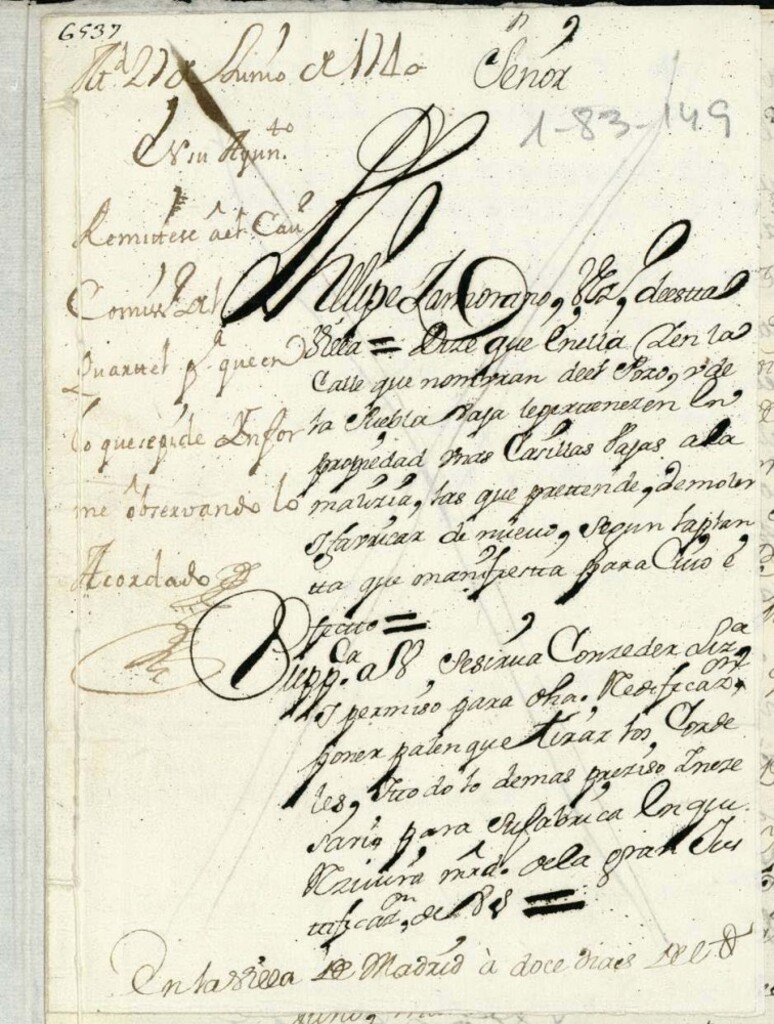 6537
M.d 27 de Junio de 1740
Señor
1-83-149
En su Ayun.to
Remittese a el Cau.o
Comiss.o del
Quartel p.a que en
lo que se pide Ynfor
me observando lo
Acordado
Phelipe Zamorano, Vz.o, de esta
Villa = Dize que en ella, y en la
Calle que nombran de el Pozo, y de
la Puebla Vaja le pertenezen en
propiedad unas Casillas Vajas a la
malizia, las que pretende, demoler
y favricar de nuevo, segun la plan
ta que manifiesta para cuio e
fecto =
Supp.ca a V.S. se sirva Conzeder Liz.a
y permiso para dha. Redificaz.on
poner palenque tirar los Corde
les, y todo lo demas preziso y neze
sario para su fabrica en que
Rezivira mrd. de la gran Jus
tificaz.on de V.S. =
En la Villa de Madrid à doce dias del